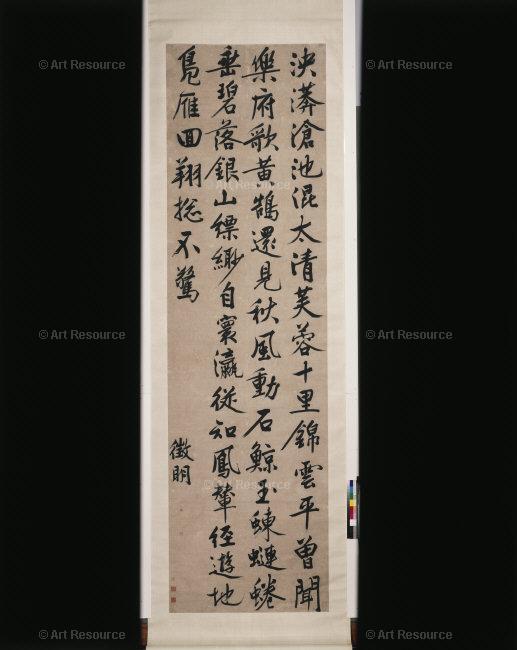 泱漭滄池混太清芙蓉十里錦雲平曾聞
樂府歌黃鵠還見秋風動石鯨玉蝀蜷
垂碧落銀山縹緲自寰瀛從知鳳輦經遊地
鳧雁回翔捴不驚
徵明
© Art Resource
© Art Resource
© Art Resource
© Art Resource
© Art Resource
© Art Resource
© Art Resource
© Art Resource
© Art Resource
© Art Resource
© Art Resource
© Art Resource